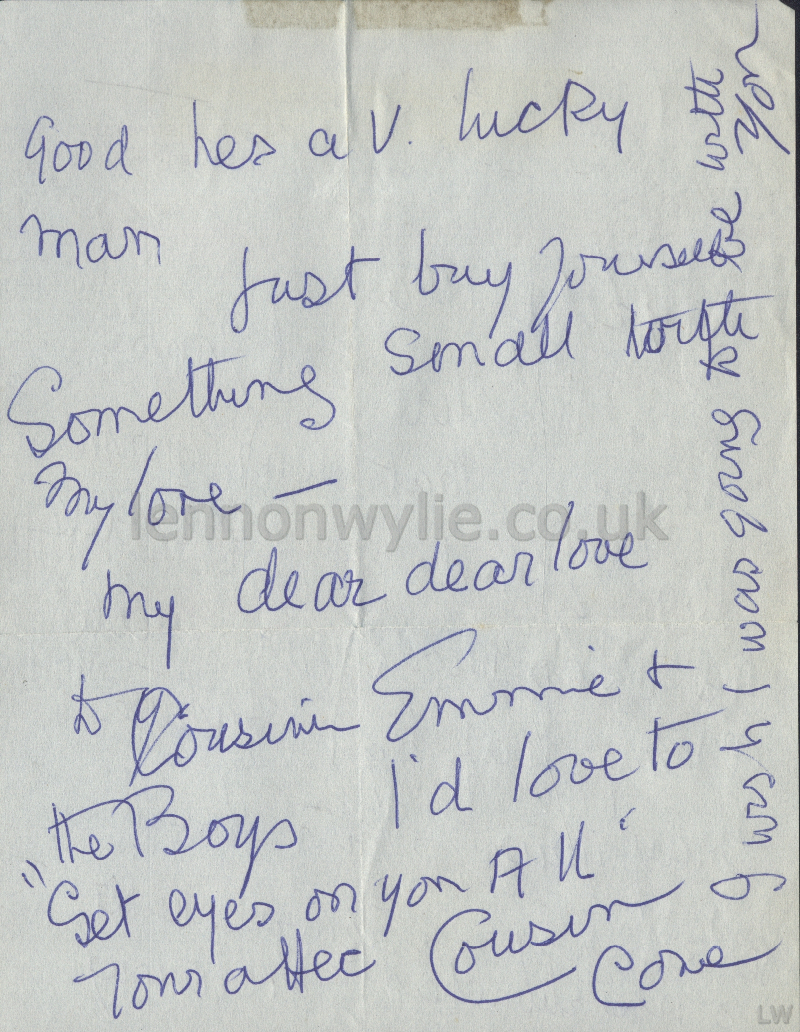 Good hes a v. lucky
man
Just buy yourself
Something small with
my love —
my dear dear love
to Cousin Emmie +
the Boys I'd love to
"Set eyes on you All"
Your affec Cousin
I wish I was going to be with
you
lennonwylie.co.uk
LW